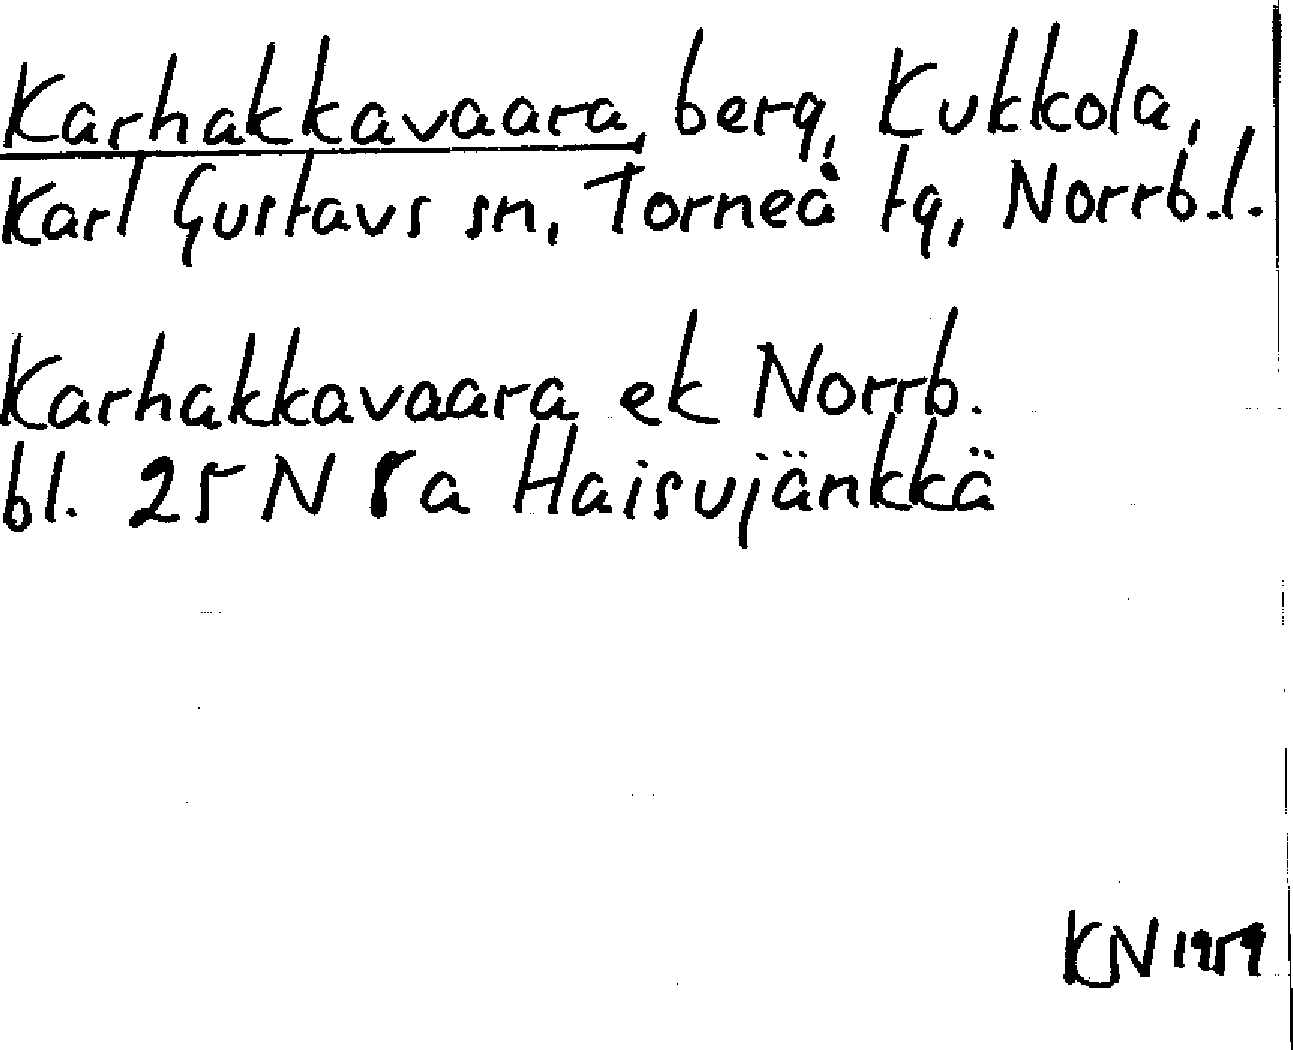 Karhakkavaara, berg, Kukkola,
Karl Gustavs sn, Torneå tg, Norrb.l.
Karhakkavaara ek Norrb.
bl. 25 N 8a Haisujänkkä
KN 1959